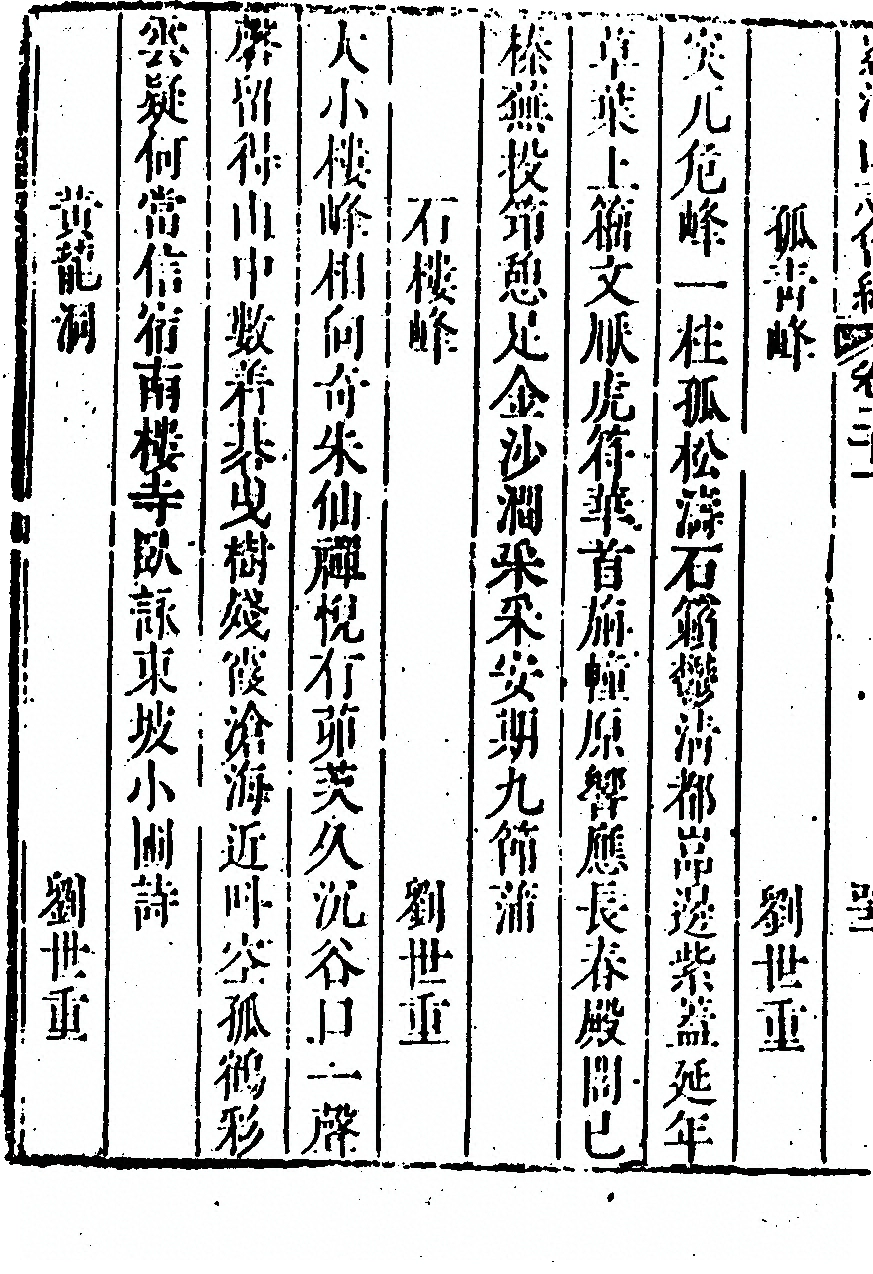 孤青峰 劉世重
突兀危峰一柱孤松濤石籟鬱清都岧邊紫蓋延年
草葉上籀文厭虎符華首旃幢原響應長春殿閣已
榛蕪投笻憩足金沙澗采采安期九節蒲
石樓峰 劉世重
大小樓峰相向奇朱仙禪悅有茆茨久沉谷口一聲
磬留得山中數着碁曳樹殘霞滄海近叫空孤鶴彩
雲疑何當信宿南樓寺臥詠東坡小圃詩
黃龍洞 劉世重